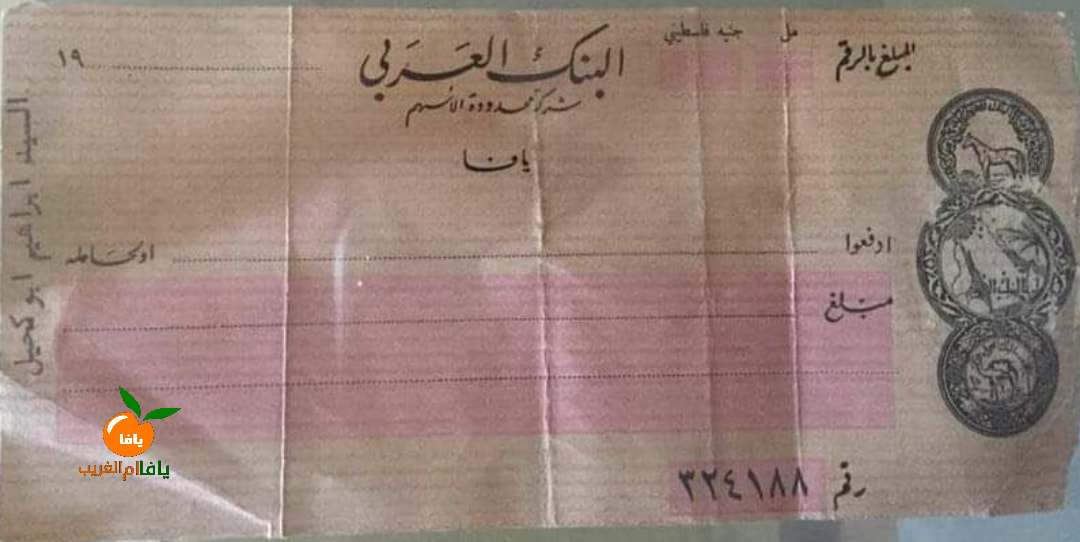 المبلغ بالرقم
مل جنيه فلسطيني
البنك العَرَبي
١٩
شركة محدودة الأسهم
يافا
ادفعوا
او لحَامله
مَبْلغ
رقم ٣٢٤١٨٨
السيد ابراهيم ابو كحيل
يافا
يافا ام الغريب